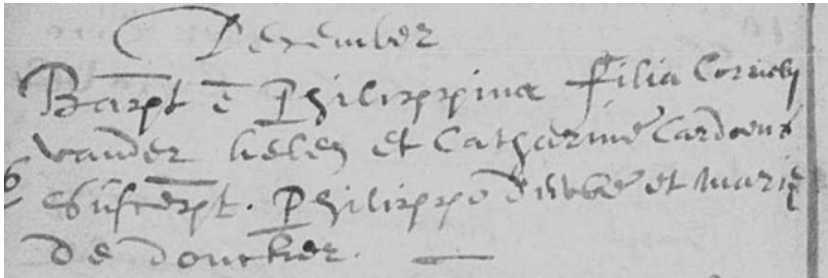 December
Bapt ē Philippina filia Cornelij
vander helen et Catharine Cardoens
6 Suscept. Philippe et Marie
de doncker.